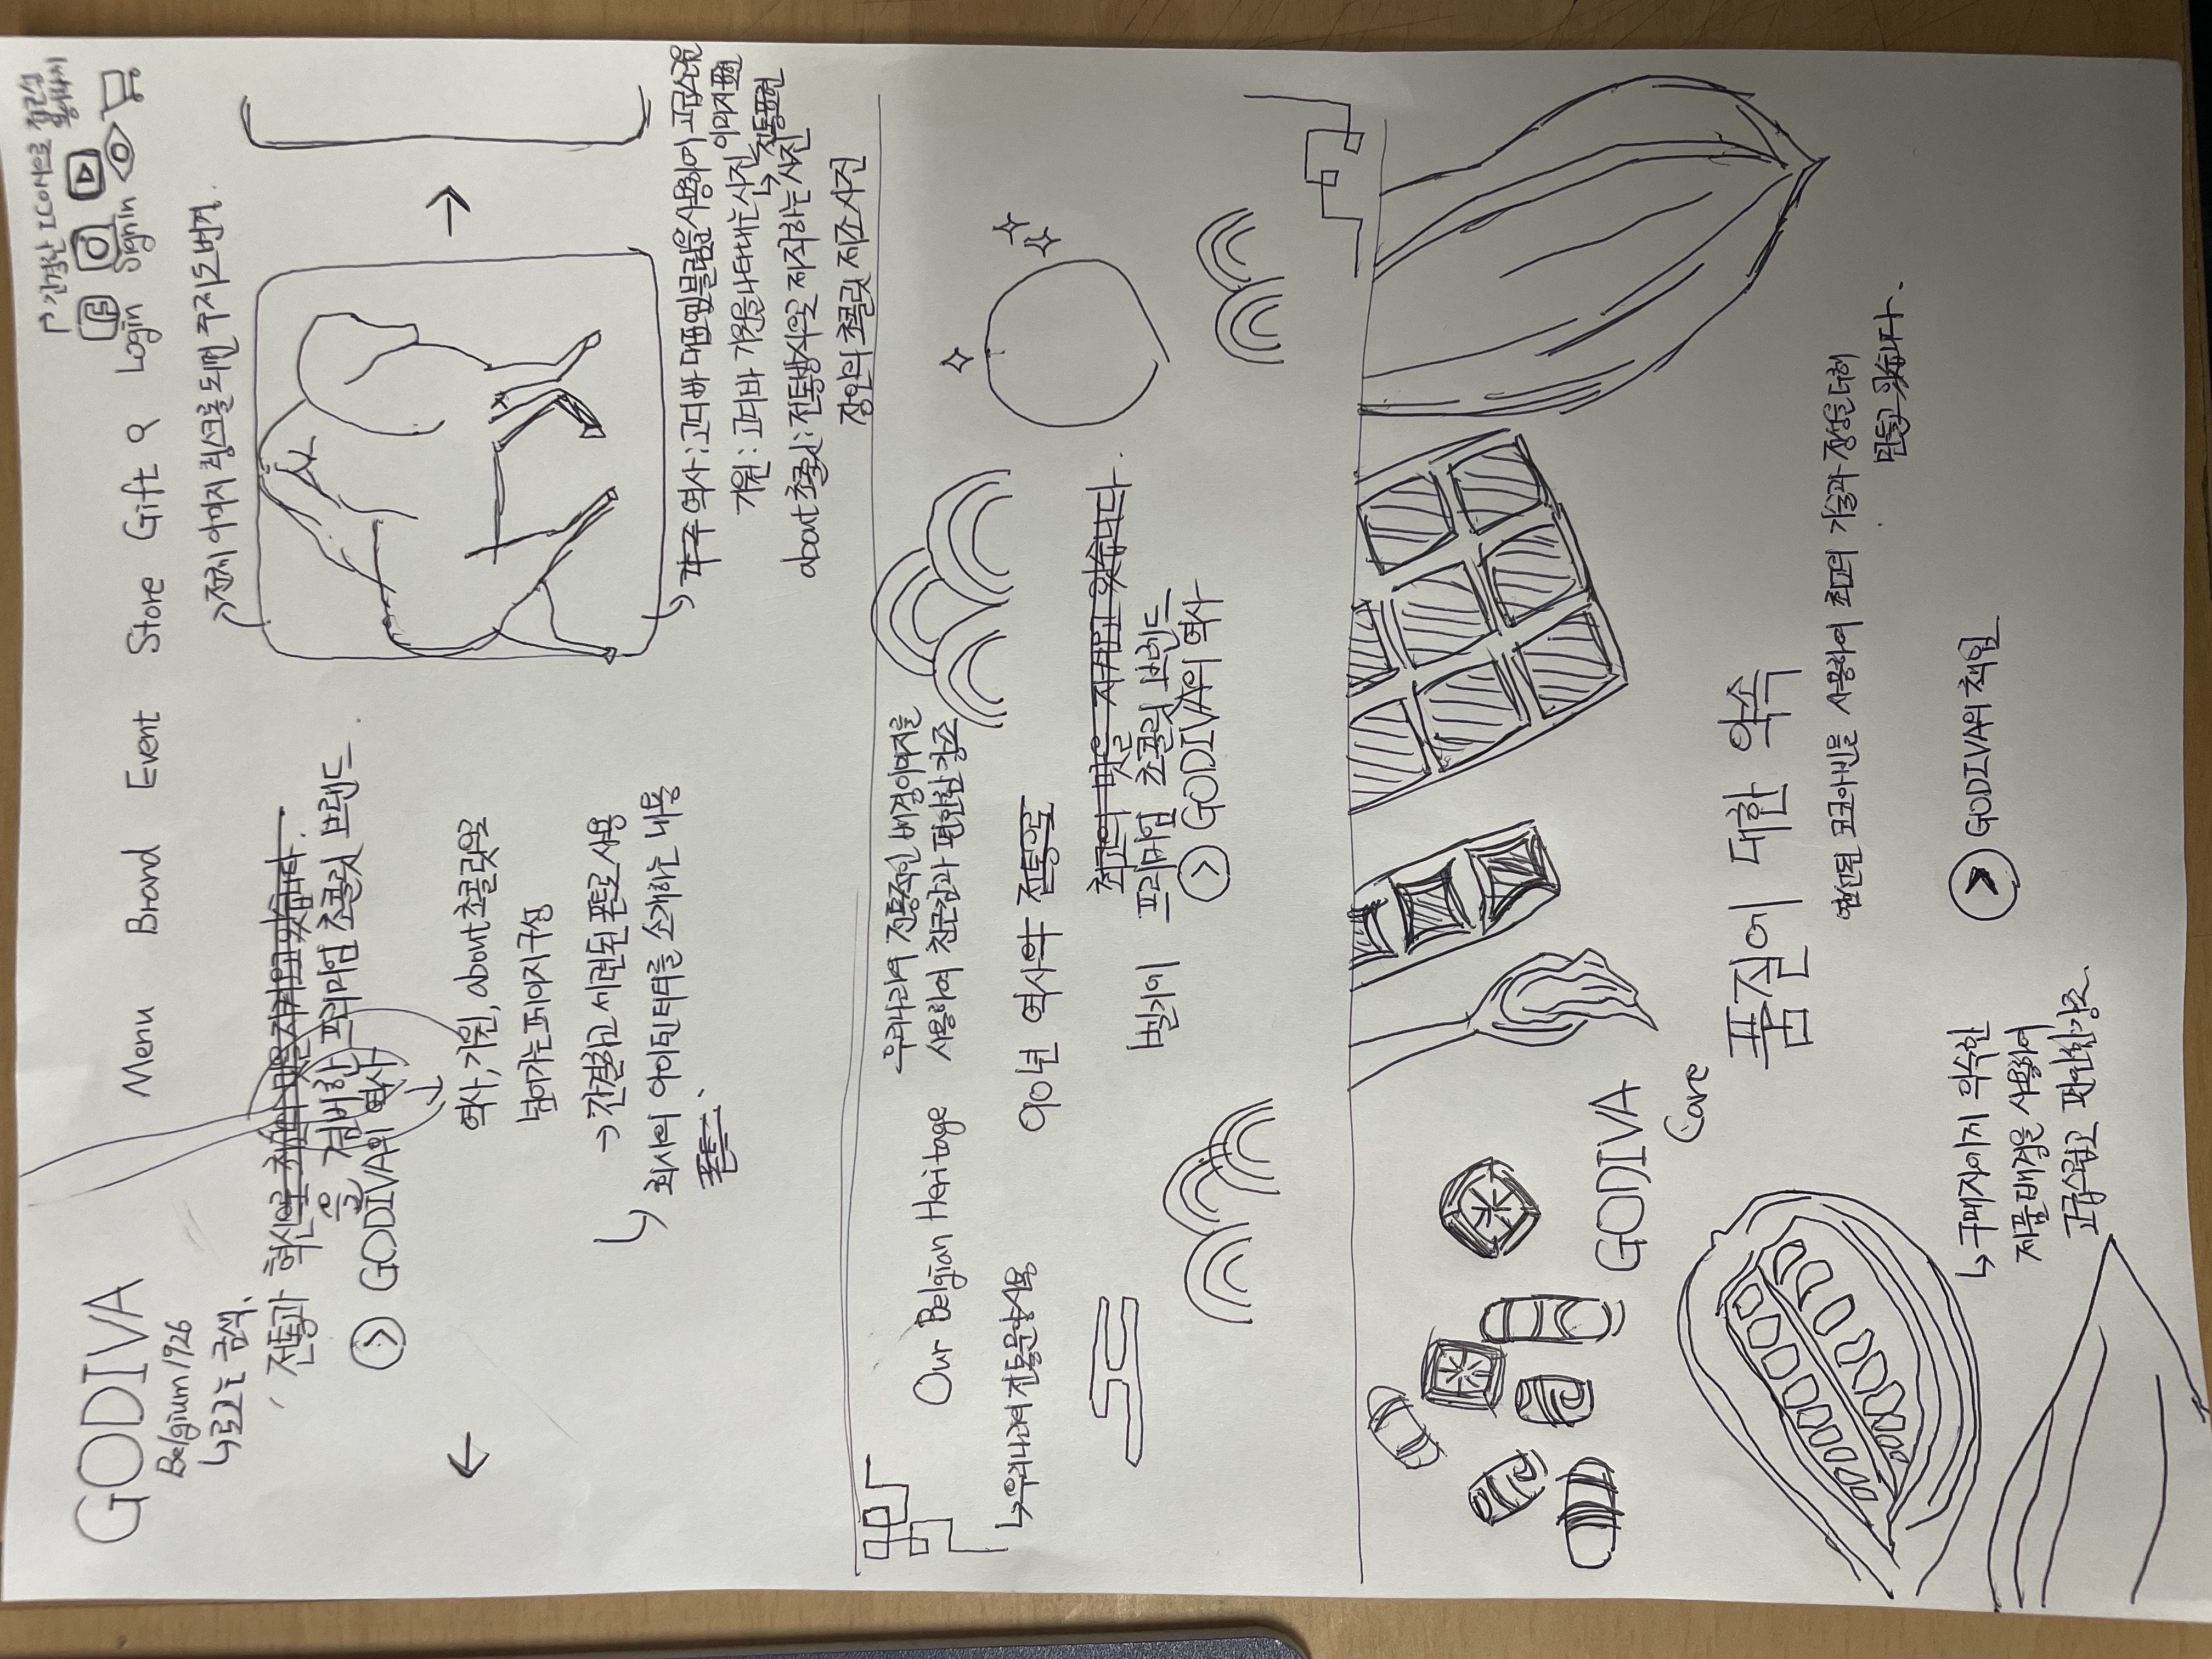 GODIVA
Belgium 1926
↳로고는 금색.
Menu Brand Event Store Gift
↱ 간결한 ICON으로 접근성
Login Sign in
→전체 이미지 링크를 되면 주제도 변경.
전통과 혁신으로 최고의 맛을 지켜오고 있습니다.
을 겸비한 프리미엄 초콜릿 브랜드.
> GODIVA의 역사
↓
← →
역사, 기원, about 초콜릿으로
넘어가는 페이지 구성
→ 간결하고 세련된 폰트로 사용
↳ 회사의 아이덴티티를 소개하는 내용
폰트
↳ 역사 : 고디바 대표엠블럼을 사용하여 고급스러운
이미지 표현
기원 : 고디바 기원을 나타내는 사진
↳ 전통표현
about 초콜릿 : 전통방식으로 제작하는 사진
장인의 초콜릿 제조사진
Our Belgian Heritage
우리나라의 전통적인 배경이미지를
사용하여 친근감과 편안함 강조
↳우리나라의 전통문양 사용
90년 역사의 전통으로
최고의 맛을 지켜오고 있습니다.
벨기에 프리미엄 초콜릿 브랜드
> GODIVA의 역사
GODIVA
Care
품질에 대한 약속
엄선된 코코아빈을 사용하여 최고의 기술과 정성을 더해
만들고 있습니다.
↳ 구매자에게 익숙한
제품배경을 사용하여
고급스럽고 편안함 강조.
> GODIVA의 책임